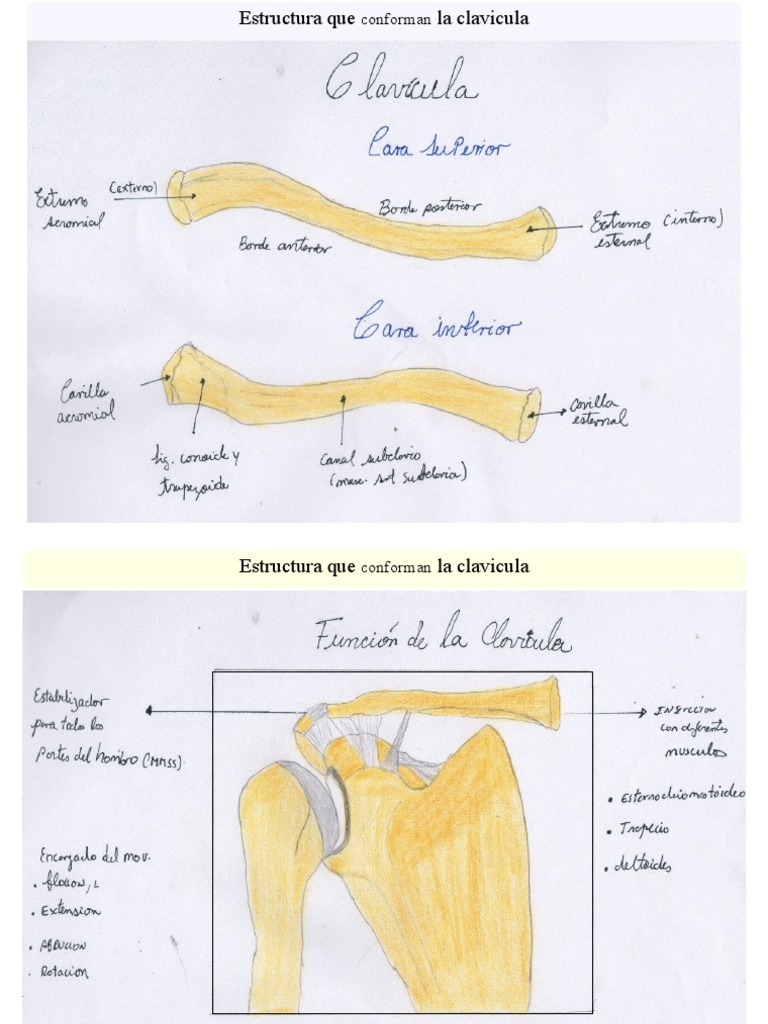 Estructura que conforman la clavicula
Clavícula
Cara superior
Extremo (externo)
acromial
Borde posterior
Borde anterior
Extremo (interno)
esternal
Cara inferior
Carilla
acromial
lig. conoide y
trapezoide
Canal subclavio
(musc. subclavia)
Carilla
esternal
Estructura que conforman la clavicula
Función de la Clavícula
Estabilizador
para todos los
Partes del hombro (MMSS).
Encargado del mov.
• flexion,
• Extension
• ABDUCION
• Rotacion
INSERCION
con diferentes
musculos
• Esternocleiomastoideo
• Trapecio
• deltoides